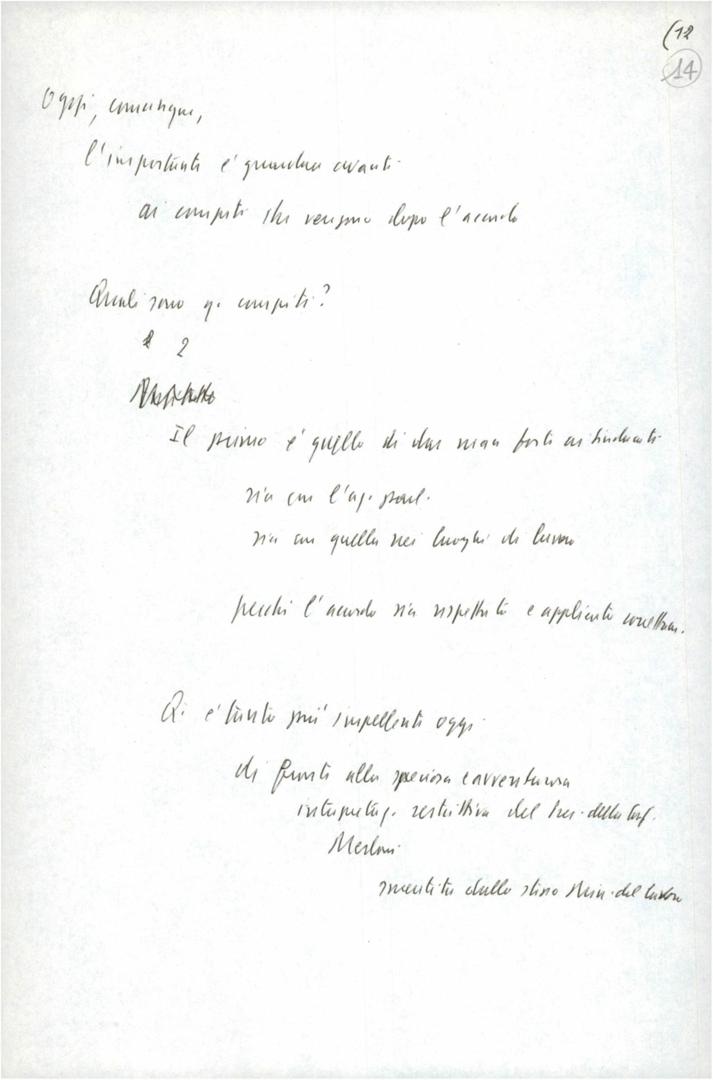 (12
14
Oggi, comunque,
l'importante è guardare avanti
ai compiti che vengono dopo l'accordo
Quali sono q. compiti?
2
Il primo è quello di dar man forte ai sindacati
sia con l'az. parl.
sia con quella nei luoghi di lavoro
perché l'accordo sia rispettato e applicato correttam.
Q. è tanto più impellente oggi
di fronte alla speciosa e avventurosa
interpretaz. restrittiva del Pres. della Conf.
Merloni
smentita dallo stesso Min. del lavoro